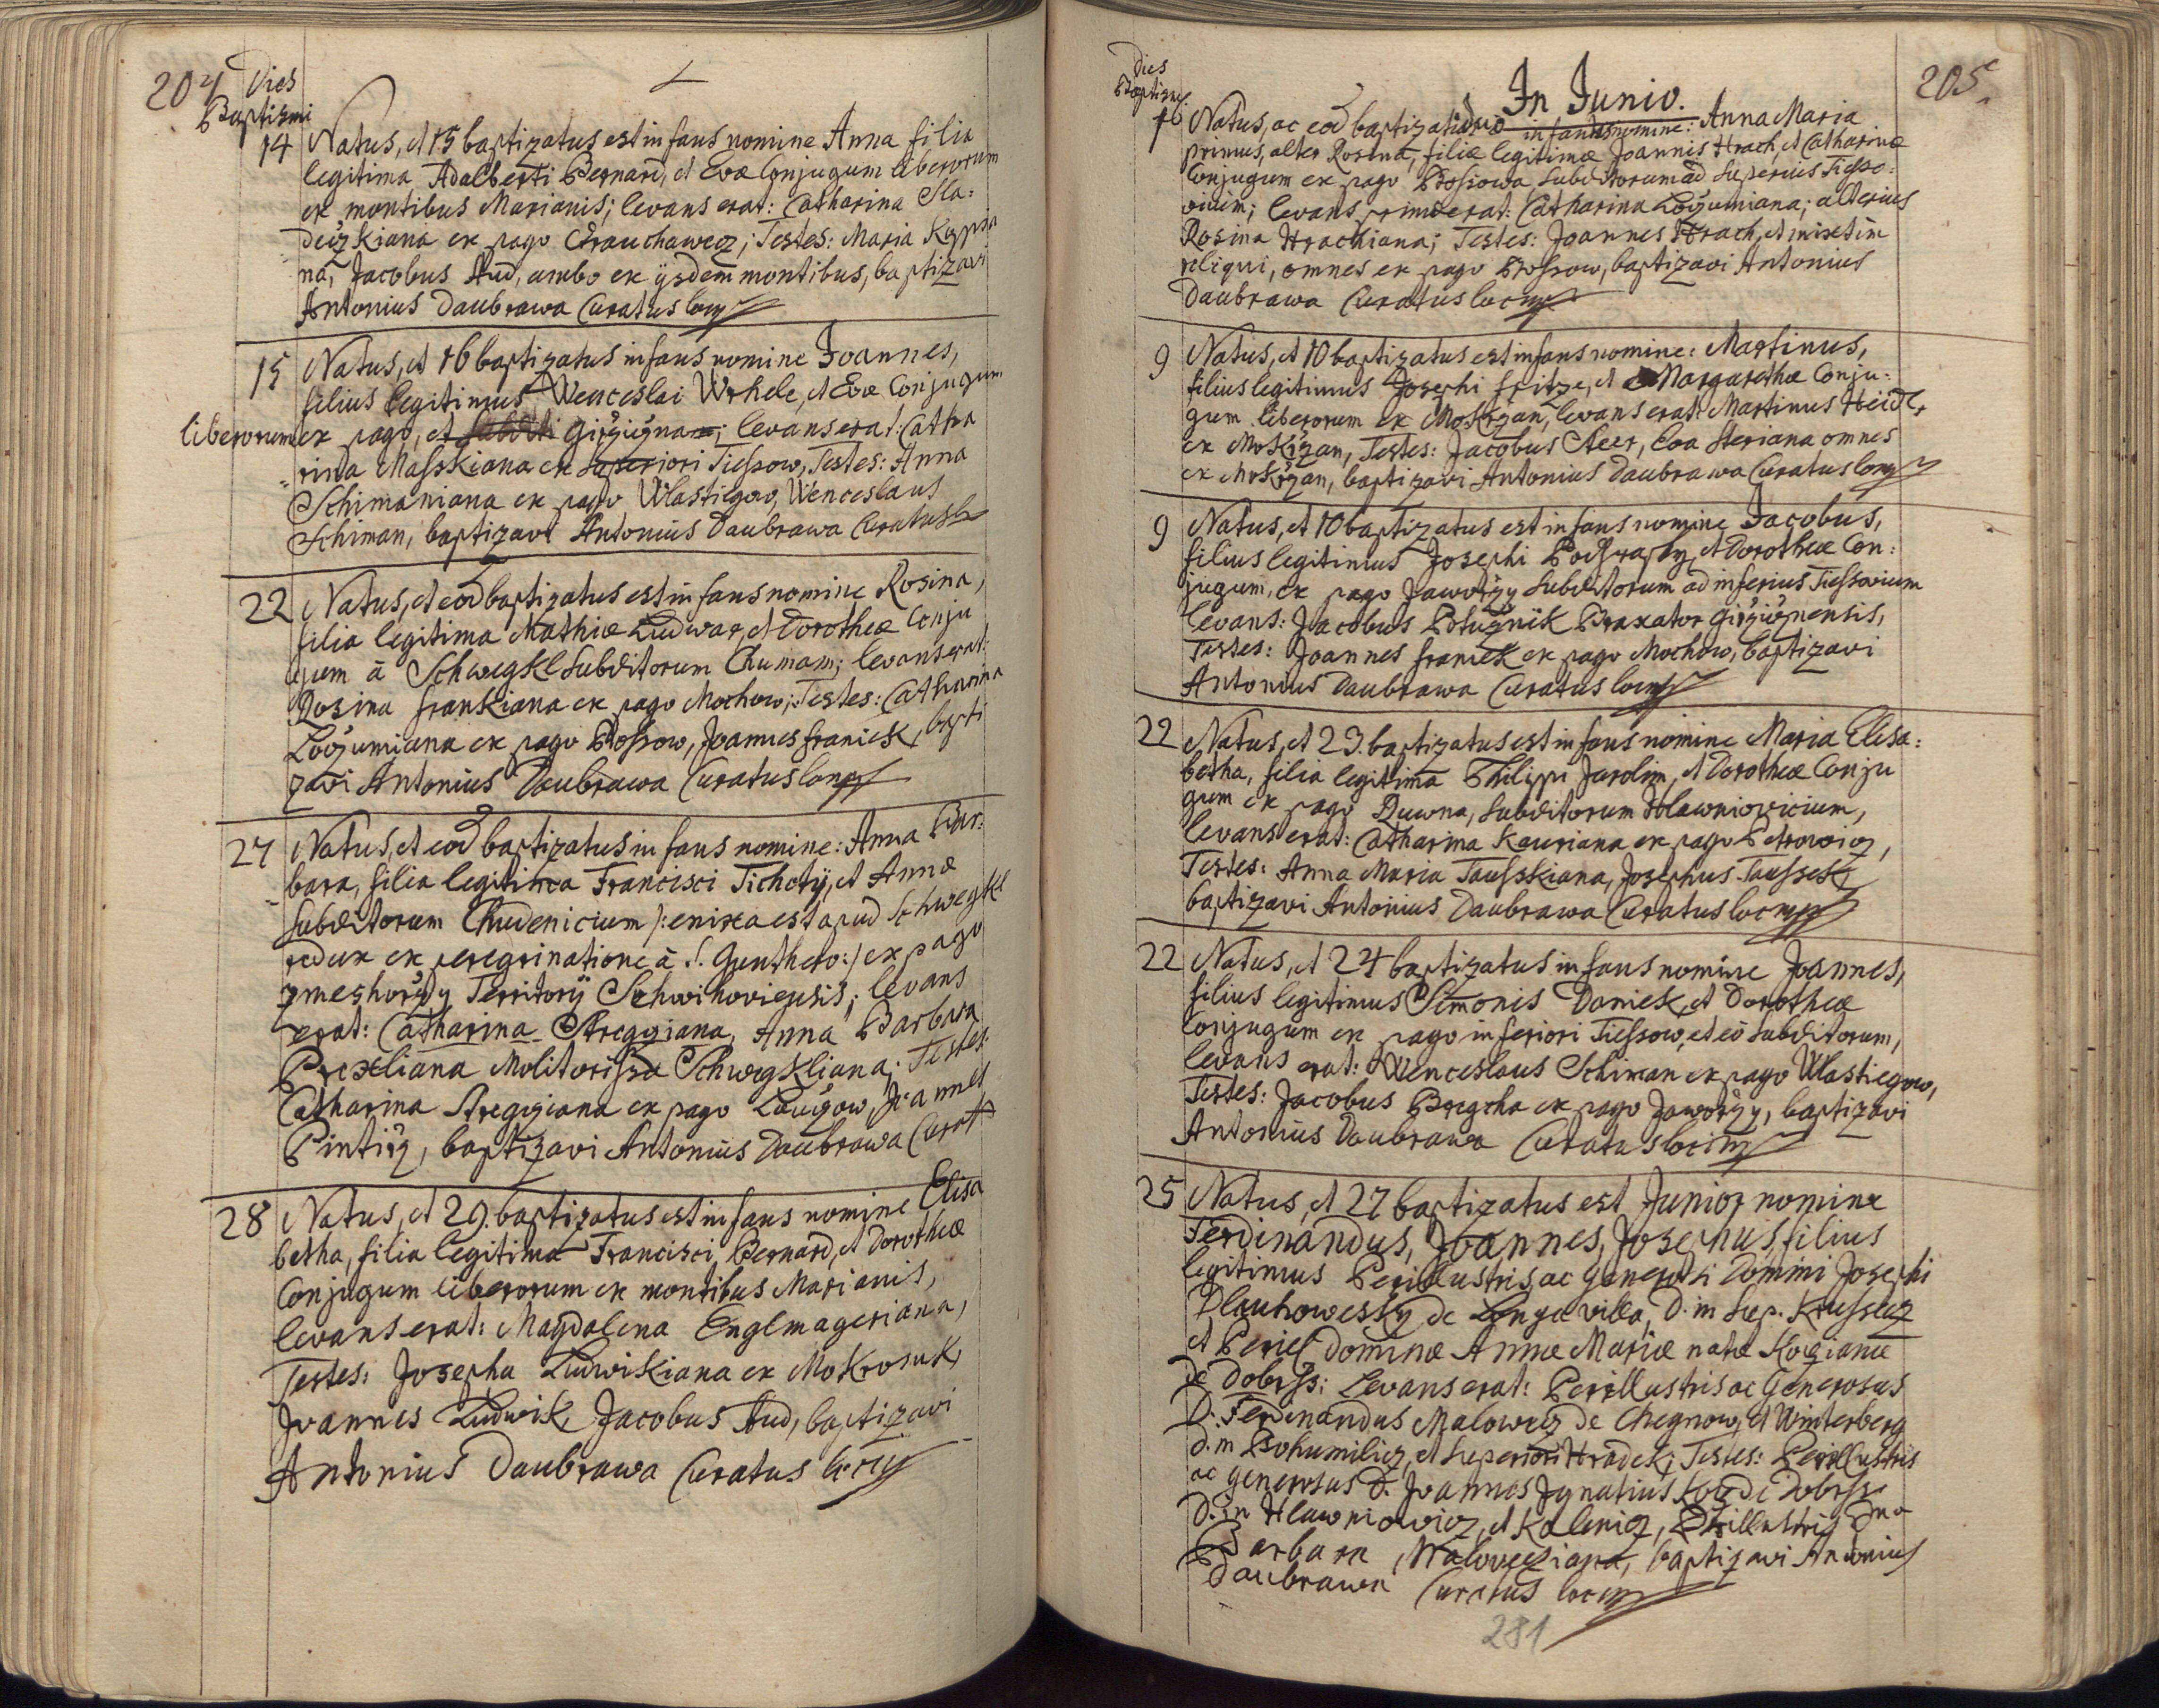 204 Dies
Baptismi
14 Natus, et 15 baptizatus est infans nomine Anna filia
legitima Adalberti Bernard, et Evæ Conjugum liberorum
ex montibus Marianis; levans erat: Catharina Sla:
deczkiana ex pago Chrauchawecz; Testes: Maria
na, Jacobus Aud, ambo ex ijsdem montibus, baptizavi
Antonius Daubrawa Curatus loci
15 Natus, et 16 baptizatus infans nomine Joannes,
filius legitimus Wenceslai Wrhele, et Evæ Conjugum
liberorum ex pago, et levans erat: Catha
rina Masskiana ex superiori Tiessow, Testes: Anna
Schimaniana ex pago Wlastiegow, Wenceslaus
Schiman, baptizavi Antonius Daubrawa Curatus
22 Natus, et eod baptizatus est infans nomine Rosina,
filia legitima Mathiæ Ludwar, et Dorotheæ Conju
gum à Schwegkl Subditorum levans erat:
Rosina Frankiana ex pago Mochow; Testes: Catharina
ex pago Brossow, Joannes Franiek, bapti
zavi Antonius Daubrawa Curatus loci
27 Natus, et eod baptizatus infans nomine: Anna Bar:
bara, filia legitima Francisci Tichotÿ, et Annæ
Subditorum Chudenicium /: enixa est apud Schwegkl
redux ex peregrinatione à S. Gunthero :/ ex pago
Territorij Schwihoviensis; levans
erat: Catharina Anna Barbara
Molitorissa Schwegkliana; Testes:
Catharina ex pago Joannes
baptizavi Antonius Daubrawa Curat
28 Natus, et 29. baptizatus est infans nomine Elisa
betha, filia legitima Francisci Bernard, et Dorotheæ
Conjugum liberorum ex montibus Marianis,
levans erat: Magdalena Englmageriana,
Testes: Josepha Ludwikiana ex Mokrosuk,
Joannes Ludwik, Jacobus Aud, baptizavi
Antonius Daubrawa Curatus loci
Dies
Baptismi
In Junio.
205
Natus, ac eod baptizati duo infantes nomine: Anna Maria
primus, alter Rosina, filiæ legitimæ Joannis Hrach, et Catharinæ
Conjugum ex pago Brossowa subditorum ad superius Tiesso:
vium; levans primæ erat: Catharina alterius
Rosina Hrachiana; Testes: Joannes Hrach, et mixtim
reliqui, omnes ex pago Brossow, baptizavi Antonius
Daubrawa Curatus loci
9 Natus, et 10 baptizatus est infans nomine: Martinus,
filius legitimus Josephi Fritze, et Margarethæ Conju:
gum liberorum ex Mokrzan, levans erat: Martinus Heidl,
ex Mokrzan, Testes: Jacobus Steer, Eva Steriana omnes
ex Mokrzan, baptizavi Antonius Daubrawa Curatus loci
9 Natus, et 10 baptizatus est infans nomine Jacobus,
filius legitimus Josephi et Dorotheæ Con:
jugum, ex pago Jaworzy Subditorum ad inferius Tiessovium
levans: Jacobus Braxator
Testes: Joannes Franiek ex pago Mochow, baptizavi
Antonius Daubrawa Curatus loci
22 Natus, et 23. baptizatus est infans nomine Maria Elisa:
betha, filia legitima Philippi Jarolim, et Dorotheæ Conju
gum ex pago Duwna, subditorum Hlawniovicium,
levans erat: Catharina Kauriana ex pago Petrowicz,
Testes: Anna Maria Tausskiana, Josephus Taussek,
baptizavi Antonius Daubrawa Curatus loci
22 Natus, et 24 baptizatus infans nomine Joannes,
filius legitimus Simonis Daniek, et Dorotheæ
Conjugum ex pago inferiori Tiessow, et eò subditorum,
levans erat: Wenceslaus Schiman ex pago Wlastiegow,
Testes: Jacobus ex pago Jaworzy, baptizavi
Antonius Daubrawa Curatus loci
25 Natus, et 27 baptizatus est Junior nomine
Ferdinandus, Joannes, Josephus, filius
legitimus Perillustris ac Generosi Domini Josephi
Dlauhowesky de Longa villa, D. in Sup. Krussecz
et Peril Dominæ Annæ Mariæ natæ Kocziana
de Dobrss; Levans erat: Perillustris ac Generosus
D. Ferdinandus Malowecz de Chegnow, et Winterberg
D. in Bohumilicz, et Superiori Hradek; Testes: Perillustris
ac Generosus D. Joannes Ignatius Kocz de Dobrss
D. in Hlawniowicz, et Kalenicz, Perillustris Dna
Barbara Malovecziana, baptizavi Antonius
Daubrawa Curatus loci
281